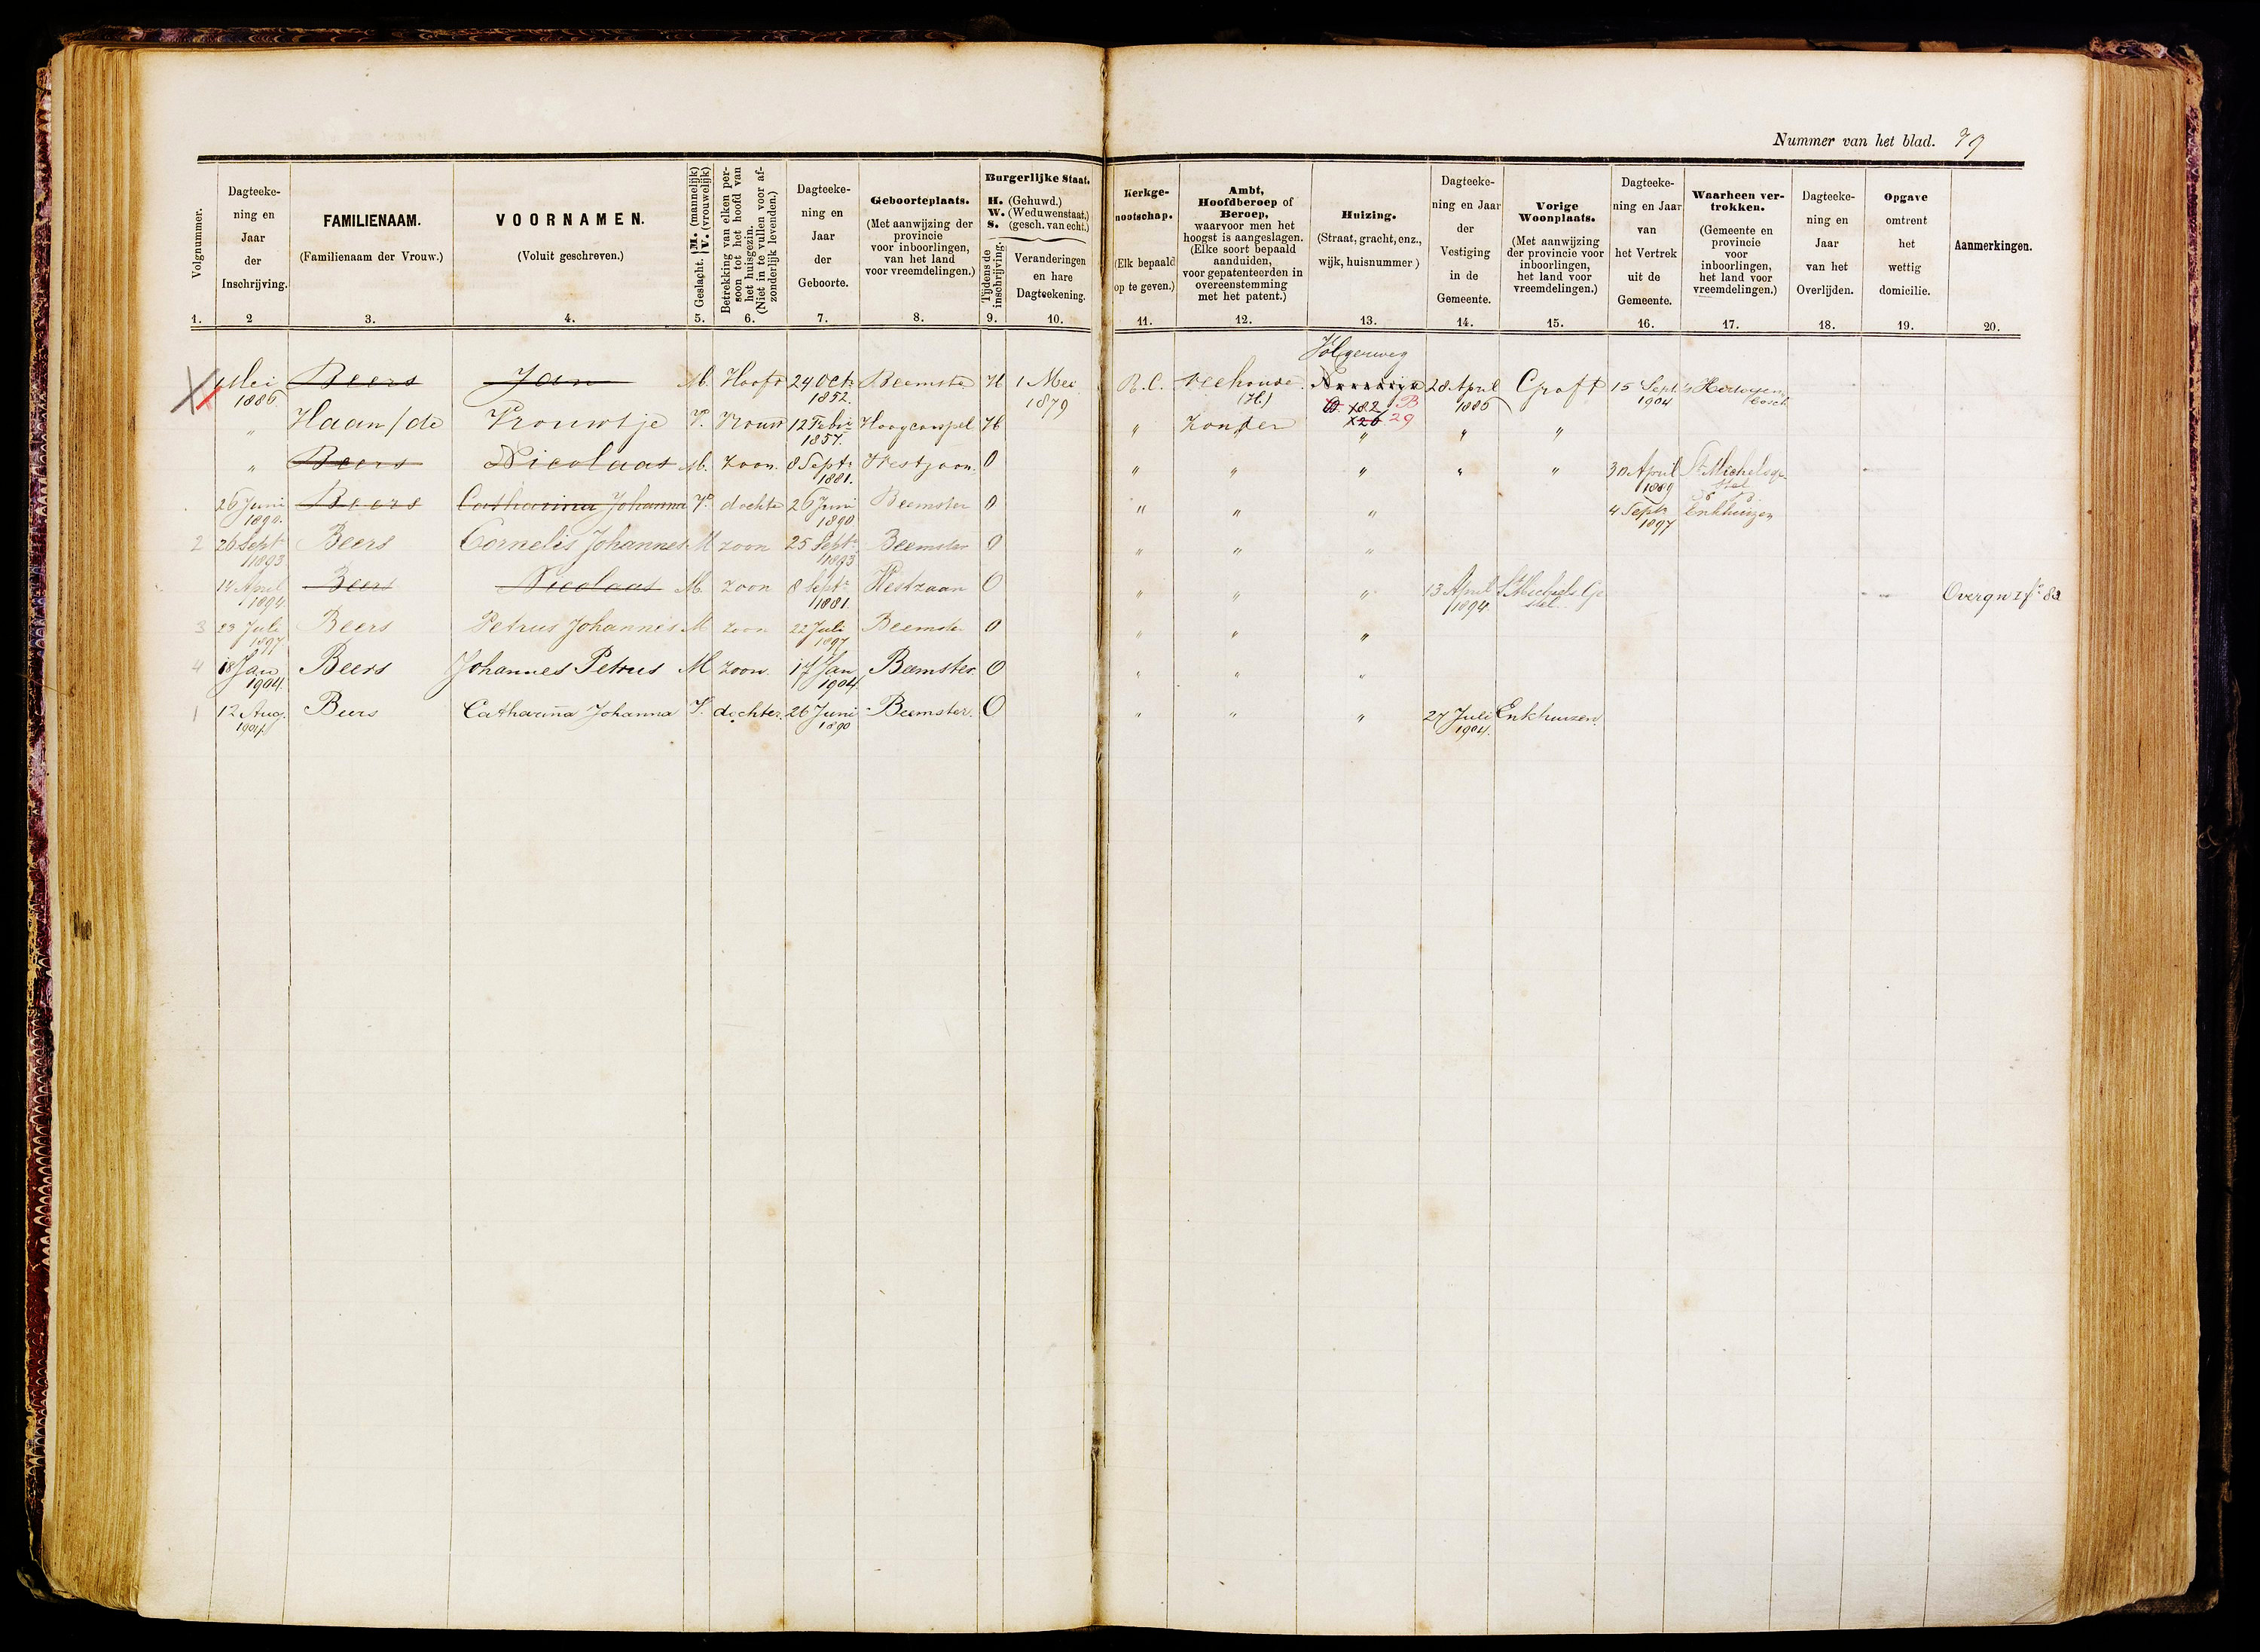 Nummer van het blad. 79
Volgnummer.
1.
Dagteeke-
ning en
Jaar
der
Inschrijving.
2
FAMILIENAAM.
(Familienaam der Vrouw.)
3.
VOORNAMEN.
(Voluit geschreven.)
4.
Geslacht. M. (mannelijk)
V. (vrouwelijk)
5.
Betrekking van elken per-
soon tot het hoofd van
het huisgezin.
(Niet in te vullen voor af-
zonderlijk levenden.)
6.
Dagteeke-
ning en
Jaar
der
Geboorte.
7.
Geboorteplaats.
(Met aanwijzing der
provincie
voor inboorlingen,
van het land
voor vreemdelingen.)
8.
Burgerlijke Staat.
H. (Gehuwd.)
W. (Weduwenstaat.)
S. (gesch. van echt.)
Tijdens de
inschrijving.
9.
Veranderingen
en hare
Dagteekening.
10.
Kerkge-
nootschap.
(Elk bepaald
op te geven.)
11.
Ambt,
Hoofdberoep of
Beroep,
waarvoor men het
hoogst is aangeslagen.
(Elke soort bepaald
aanduiden,
voor gepatenteerden in
overeenstemming
met het patent.)
12.
Huizing.
(Straat, gracht, enz.,
wijk, huisnummer)
13.
Dagteeke-
ning en Jaar
der
Vestiging
in de
Gemeente.
14.
Vorige
Woonplaats.
(Met aanwijzing
der provincie voor
inboorlingen,
het land voor
vreemdelingen.)
15.
Dagteeke-
ning en Jaar
van
het Vertrek
uit de
Gemeente.
16.
Waarheen ver-
trokken.
(Gemeente en
provincie
voor
inboorlingen,
het land voor
vreemdelingen.)
17.
Dagteeke-
ning en
Jaar
van het
Overlijden.
18.
Opgave
omtrent
het
wettig
domicilie.
19.
Aanmerkingen.
20.
Volgerweg
1 Mei 1886 Beers Jan M. Hoofd 24 Oct. 1852. Beemster H 1 Mei 1879 R.C. Veehouder (H.) B 182 B 29 28 April 1886 Graft 15 Sept 1904 's Hertogenbosch
" Haan/de Vrouwtje V. Vrouw 12 Febr 1857. Hoogcarspel H " Zonder " " "
" Beers Nicolaas M. Zoon. 8 Sept. 1881. Westzaan. O " " " " " 30 April 1889 St Michelsgestel
26 Juni 1890. Beers Catharina Johanna V. dochter 26 Juni 1890 Beemster O " " " 4 Septr 1897 Enkhuizen
2 26 Sept. 1893 Beers Cornelis Johannes M zoon 25 Sept. 1893 Beemster O " " "
14 April 1894 Beers Nicolaas M. zoon 8 Sept. 1881. Westzaan O " " " 13 April 1894 St Michels Gestel Overgn I fo 82
3 23 Juli 1897 Beers Petrus Johannes M zoon 22 Juli 1897 Beemster O " " "
4 18 Jan 1904 Beers Johannes Petrus M zoon 17 Jan 1904 Beemster. O " " "
1 12 Aug. 1904 Beers Catharina Johanna V. dochter. 26 Juni 1890 Beemster. O " " " 27 Juli 1904. Enkhuizen.